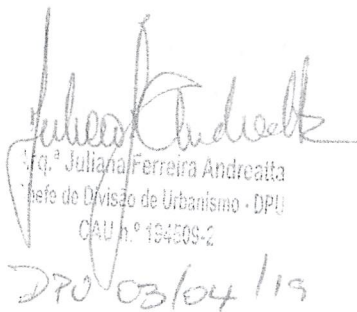 Juliana F Andrealta
Arq.ª Juliana Ferreira Andrealta
Chefe de Divisão de Urbanismo - DPU
CAU n.º 194509-2
DPU 03/04/19